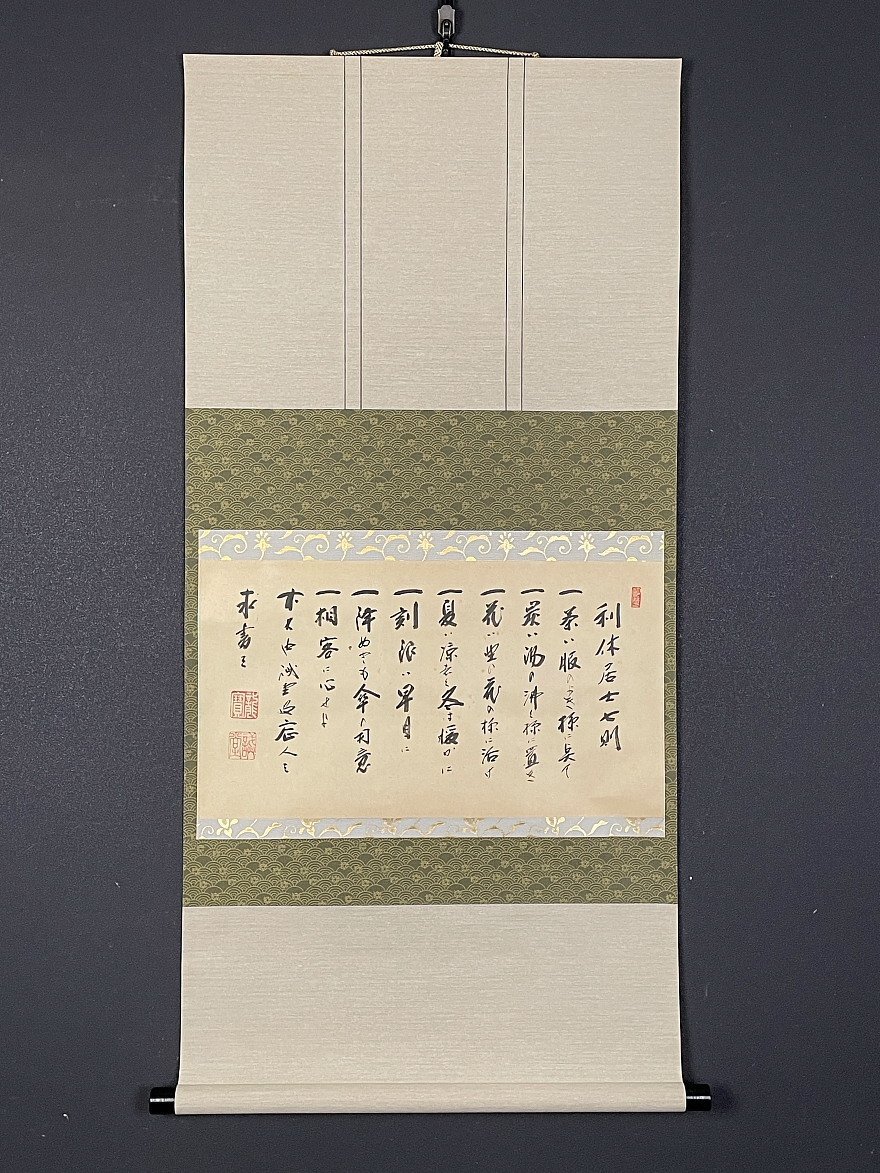 利休居士七則
一茶ハ服の定様に点て
一炭ハ湯の沸く様置き
一花ハ野の花の様に活け
一夏ハ涼しく冬は暖かに
一刻限ハ早目に
一降らずとも傘ノ用意
一相客に心せよ
応人之
求書之